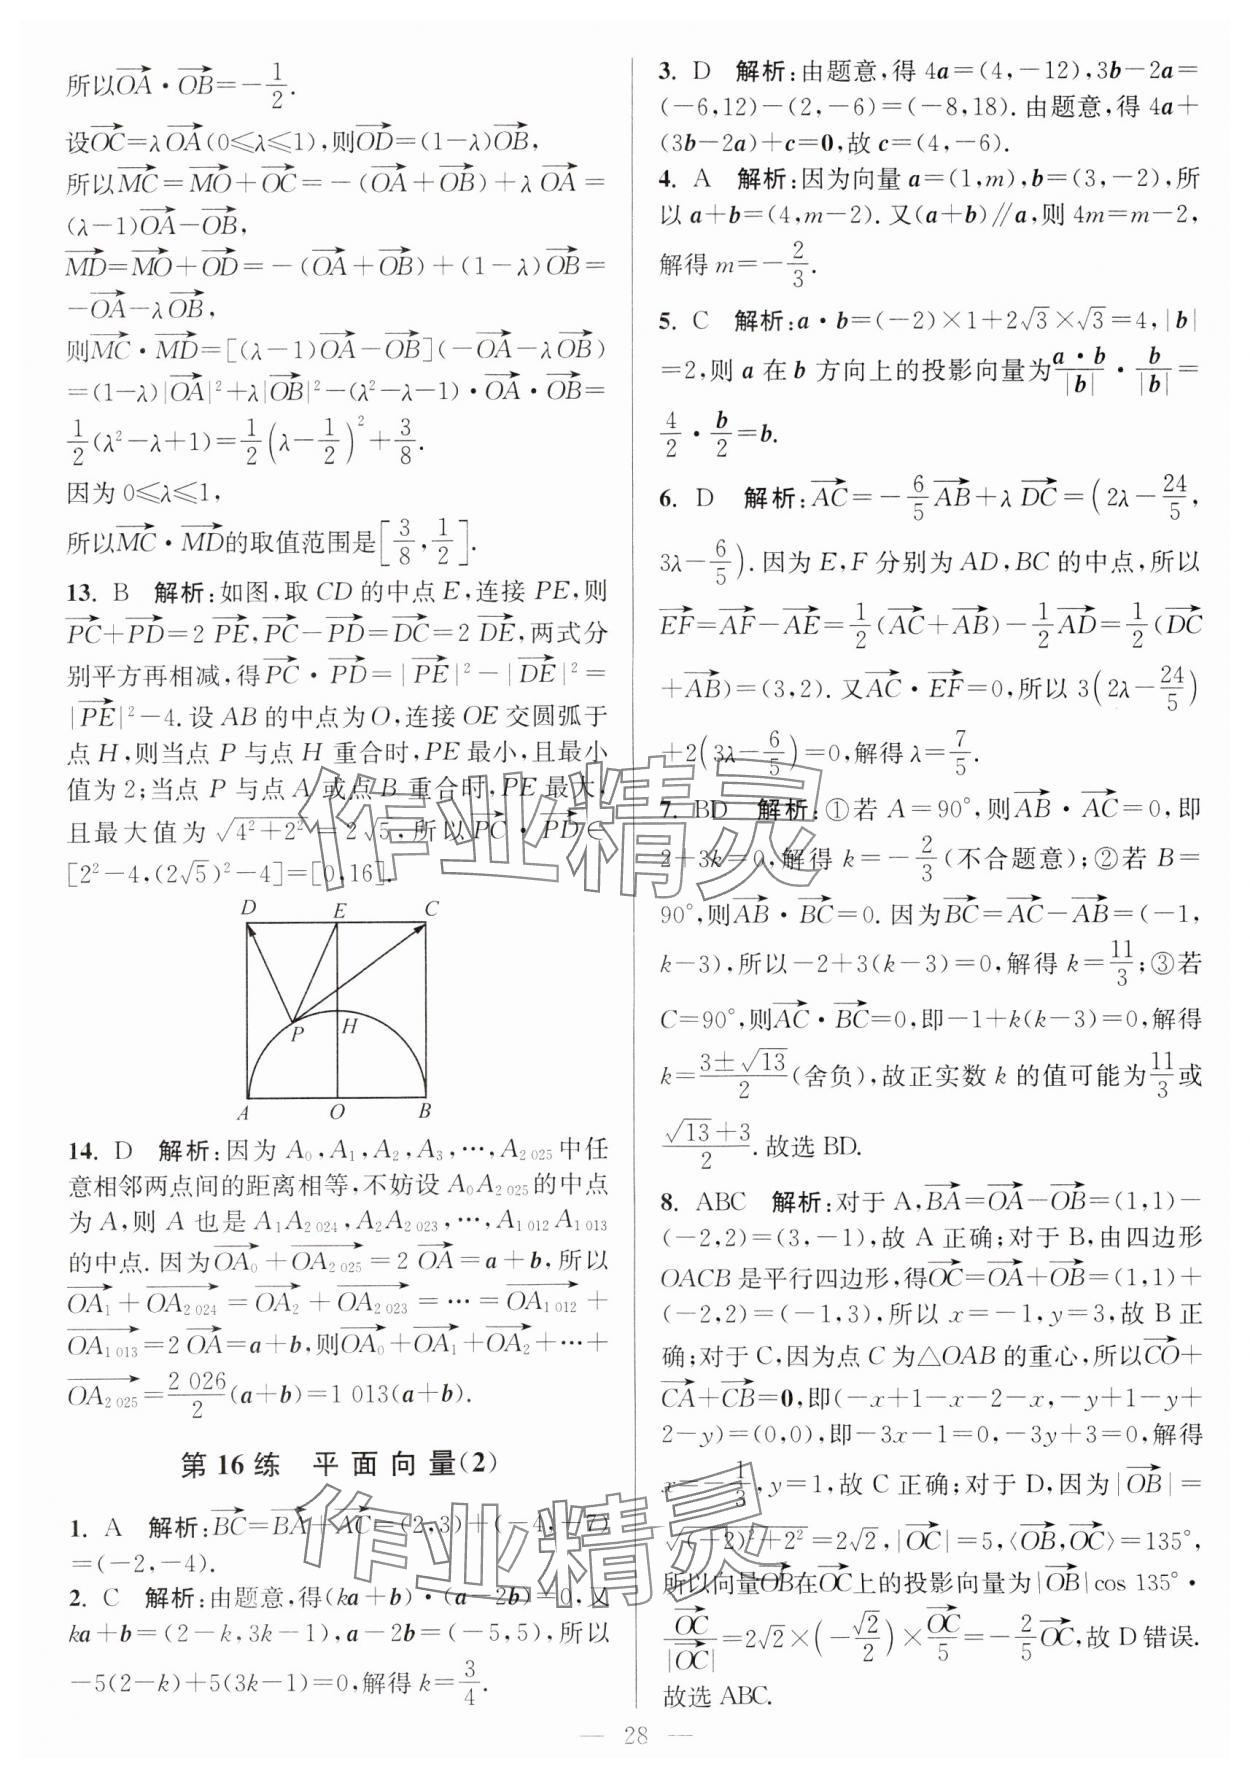 所以OA·OB=-1/2.
设OC=λOA(0≤λ≤1),则OD=(1-λ)OB,
所以MC=MO+OC=-(OA+OB)+λOA=
(λ-1)OA-OB,
MD=MO+OD=-(OA+OB)+(1-λ)OB=
-OA-λOB,
则MC·MD=[(λ-1)OA-OB](-OA-λOB)
=(1-λ)|OA|²+λ|OB|²-(λ²-λ-1)·OA·OB=
1/2(λ²-λ+1)=1/2(λ-1/2)²+3/8.
因为0≤λ≤1,
所以MC·MD的取值范围是[3/8,1/2].
13. B 解析:如图,取CD的中点E,连接PE,则
PC+PD=2PE,PC-PD=DC=2DE,两式分
别平方再相减,得PC·PD=|PE|²-|DE|²=
|PE|²-4.设AB的中点为O,连接OE交圆弧于
点H,则当点P与点H重合时,PE最小,且最小
值为2;当点P与点A或点B重合时,PE最大,
且最大值为√(4²+2²)=2√5,所以PC·PD∈
[2²-4,(2√5)²-4]=[0,16].
D E C
P H
A O B
14. D 解析:因为A₀,A₁,A₂,A₃,…,A₂₀₂₅中任
意相邻两点间的距离相等,不妨设A₀A₂₀₂₅的中点
为A,则A也是A₁A₂₀₂₄,A₂A₂₀₂₃,…,A₁₀₁₂A₁₀₁₃
的中点.因为OA₀+OA₂₀₂₅=2OA=a+b,所以
OA₁+OA₂₀₂₄=OA₂+OA₂₀₂₃=…=OA₁₀₁₂+
OA₁₀₁₃=2OA=a+b,则OA₀+OA₁+OA₂+…+
OA₂₀₂₅=2 026/2(a+b)=1 013(a+b).
第16练 平面向量(2)
1. A 解析:BC=BA+AC=(2,3)+(-4,-7)
=(-2,-4).
2. C 解析:由题意,得(ka+b)·(a-2b)=0,又
ka+b=(2-k,3k-1),a-2b=(-5,5),所以
-5(2-k)+5(3k-1)=0,解得k=3/4.
3. D 解析:由题意,得4a=(4,-12),3b-2a=
(-6,12)-(2,-6)=(-8,18).由题意,得4a+
(3b-2a)+c=0,故c=(4,-6).
4. A 解析:因为向量a=(1,m),b=(3,-2),所
以a+b=(4,m-2).又(a+b)∥a,则4m=m-2,
解得m=-2/3.
5. C 解析:a·b=(-2)×1+2√3×√3=4,|b|
=2,则a在b方向上的投影向量为a·b/|b|·b/|b|=
4/2·b/2=b.
6. D 解析:AC=-6/5AB+λDC=(2λ-24/5,
3λ-6/5).因为E,F分别为AD,BC的中点,所以
EF=AF-AE=1/2(AC+AB)-1/2AD=1/2(DC
+AB)=(3,2).又AC·EF=0,所以3(2λ-24/5)
+2(3λ-6/5)=0,解得λ=7/5.
7. BD 解析:①若A=90°,则AB·AC=0,即
2+3k=0,解得k=-2/3(不合题意);②若B=
90°,则AB·BC=0.因为BC=AC-AB=(-1,
k-3),所以-2+3(k-3)=0,解得k=11/3;③若
C=90°,则AC·BC=0,即-1+k(k-3)=0,解得
k=(3±√13)/2(舍负),故正实数k的值可能为11/3或
(√13+3)/2.故选BD.
8. ABC 解析:对于A,BA=OA-OB=(1,1)-
(-2,2)=(3,-1),故A正确;对于B,由四边形
OACB是平行四边形,得OC=OA+OB=(1,1)+
(-2,2)=(-1,3),所以x=-1,y=3,故B正
确;对于C,因为点C为△OAB的重心,所以CO+
CA+CB=0,即(-x+1-x-2-x,-y+1-y+
2-y)=(0,0),即-3x-1=0,-3y+3=0,解得
x=-1/3,y=1,故C正确;对于D,因为|OB|=
√((-2)²+2²)=2√2,|OC|=5,⟨OB,OC⟩=135°,
所以向量OB在OC上的投影向量为|OB|cos 135°·
OC/|OC|=2√2×(-√2/2)×OC/5=-2/5OC,故D错误.
故选ABC.
— 28 —
作业精灵
作业精灵